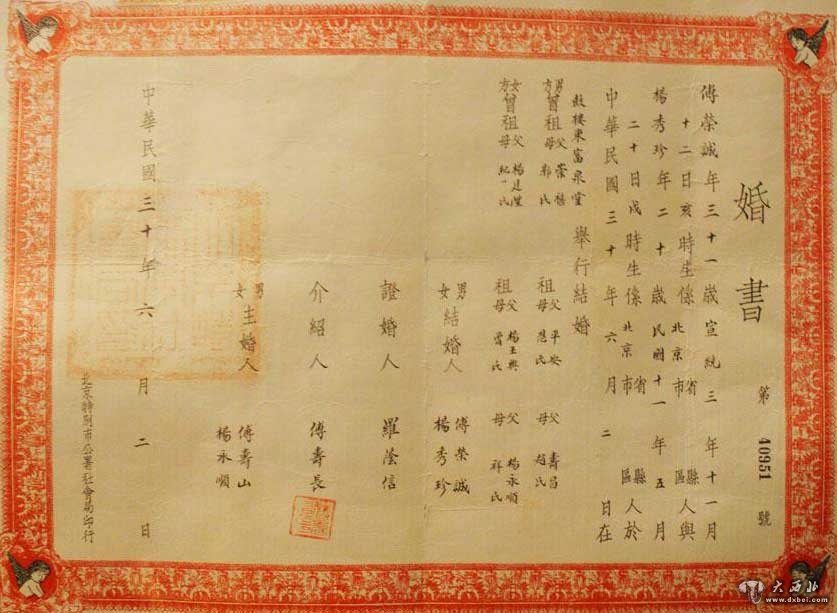 婚書
第 40951 號
傅榮誠年三十一歲宣統三年十一月
十二日亥時生係北京省市縣區人與
楊秀珍年二十歲民國十一年五月
二十日戌時生係北京省市縣區人於
中華民國三十年六月二日在
鼓樓東富泉堂舉行結婚
男方曾祖父崇禧母郭氏 祖父平安母 氏 父壽昌母趙氏
女方曾祖父楊廷 母紀氏 祖父楊玉興母曹氏 父楊永順母祥氏
男女結婚人 傅榮誠 楊秀珍
證婚人 羅蔭信
介紹人 傅壽長
男女主婚人 傅壽山 楊永順
中華民國三十年六月二日
北京特別市公署社會局印行
大西北
www.dxbei.com